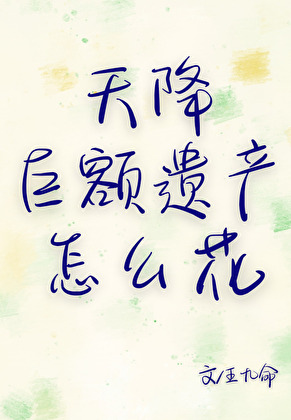 天降
巨额遗产
怎么花
文/王九命